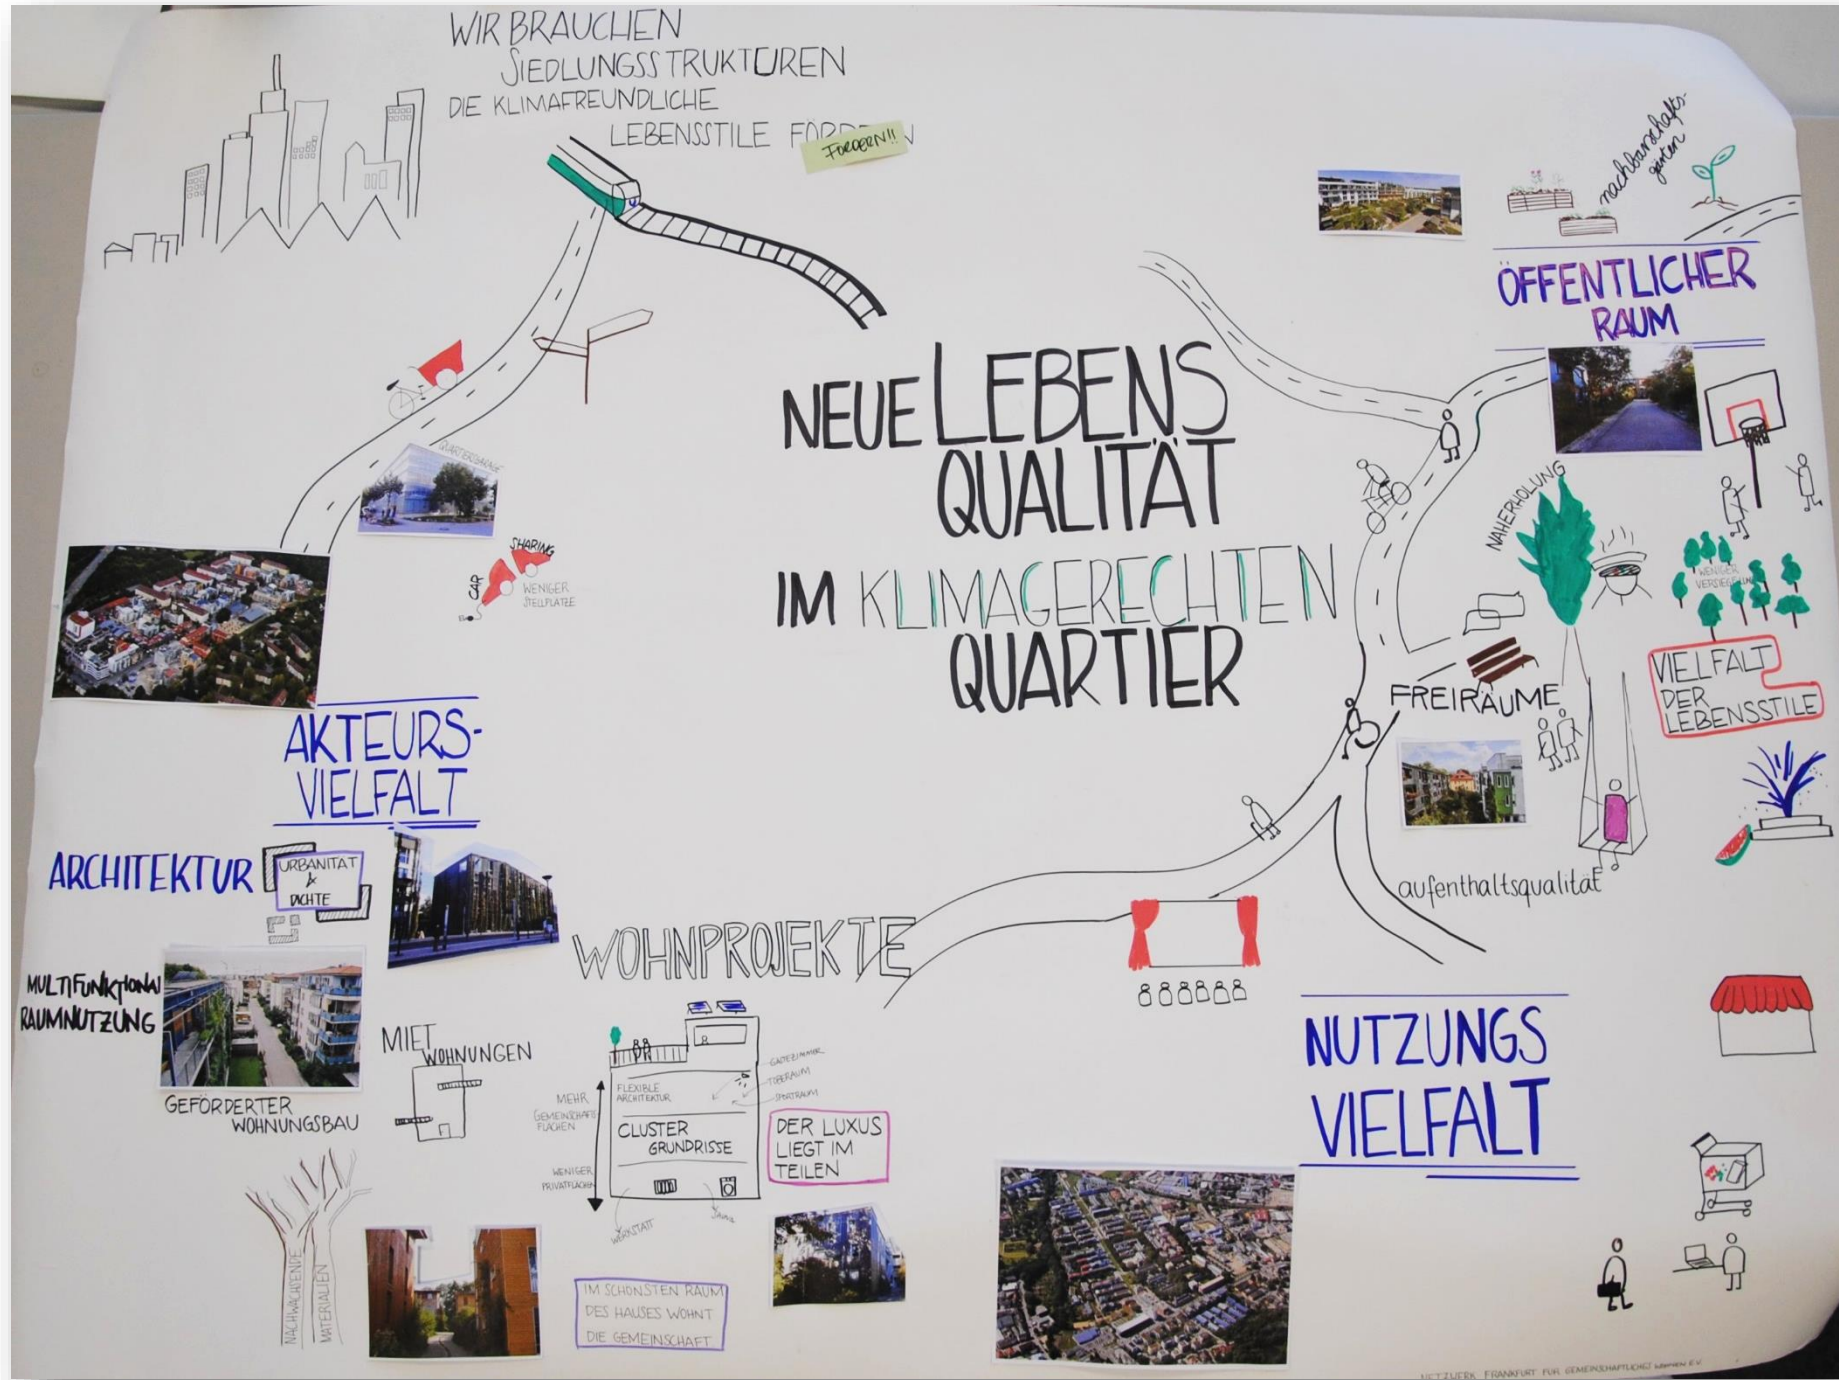 WIR BRAUCHEN
SIEDLUNGSSTRUKTUREN
DIE KLIMAFREUNDLICHE
LEBENSSTILE
FORDERN!!
nachbarschafts-
gärten
ÖFFENTLICHER
RAUM
NEUE LEBENS
QUALITÄT
IM KLIMAGERECHTEN
QUARTIER
QUARTIERSGARAGE
CAR
SHARING
WENIGER
STELLPLÄTZE
NAHERHOLUNG
WENIGER
FREIRÄUME
VIELFALT
DER
LEBENSSTILE
aufenthaltsqualität
AKTEURS-
VIELFALT
ARCHITEKTUR
URBANITÄT
&
DICHTE
MULTIFUNKTIONAL
RAUMNUTZUNG
GEFÖRDERTER
WOHNUNGSBAU
MIET
WOHNUNGEN
WOHNPROJEKTE
MEHR
GEMEINSCHAFTS
FLÄCHEN
WENIGER
PRIVATFLÄCHEN
FLEXIBLE
ARCHITEKTUR
CLUSTER
GRUNDRISSE
GÄSTEZIMMER
TOBERAUM
SPORTRAUM
WERKSTATT
SAUNA
DER LUXUS
LIEGT IM
TEILEN
NACHWACHSENDE
MATERIALIEN
IM SCHÖNSTEN RAUM
DES HAUSES WOHNT
DIE GEMEINSCHAFT
NUTZUNGS
VIELFALT
NETZWERK FRANKFURT FÜR GEMEINSCHAFTLICHES WOHNEN E.V.